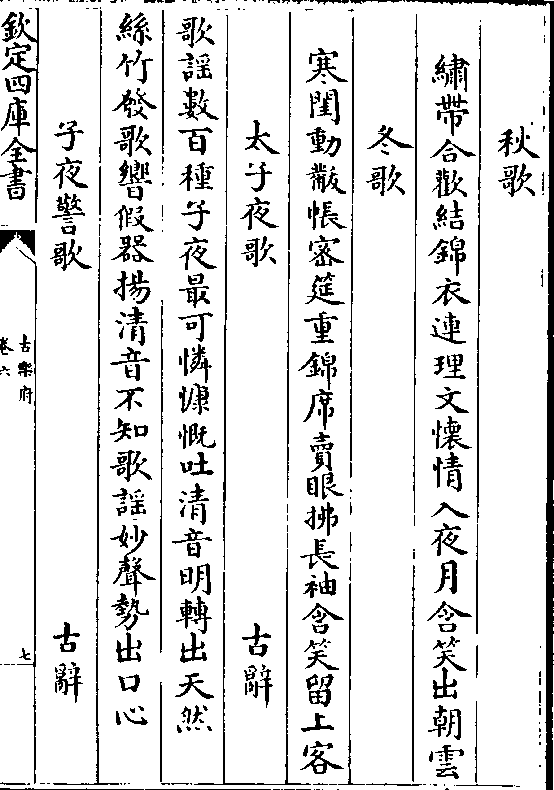 秋歌
繡帶合歡結錦衣連理文懷情入夜月含笑出朝雲
冬歌
寒閨動黻帳密筵重錦席賣眼拂長袖含笑留上客
太子夜歌　古辭
歌謡數百種子夜最可憐慷慨吐清音明轉出天然
絲竹發歌響假器揚清音不知歌謡妙聲勢出口心
子夜警歌　古辭
欽定四庫全書
古樂府
卷六
七